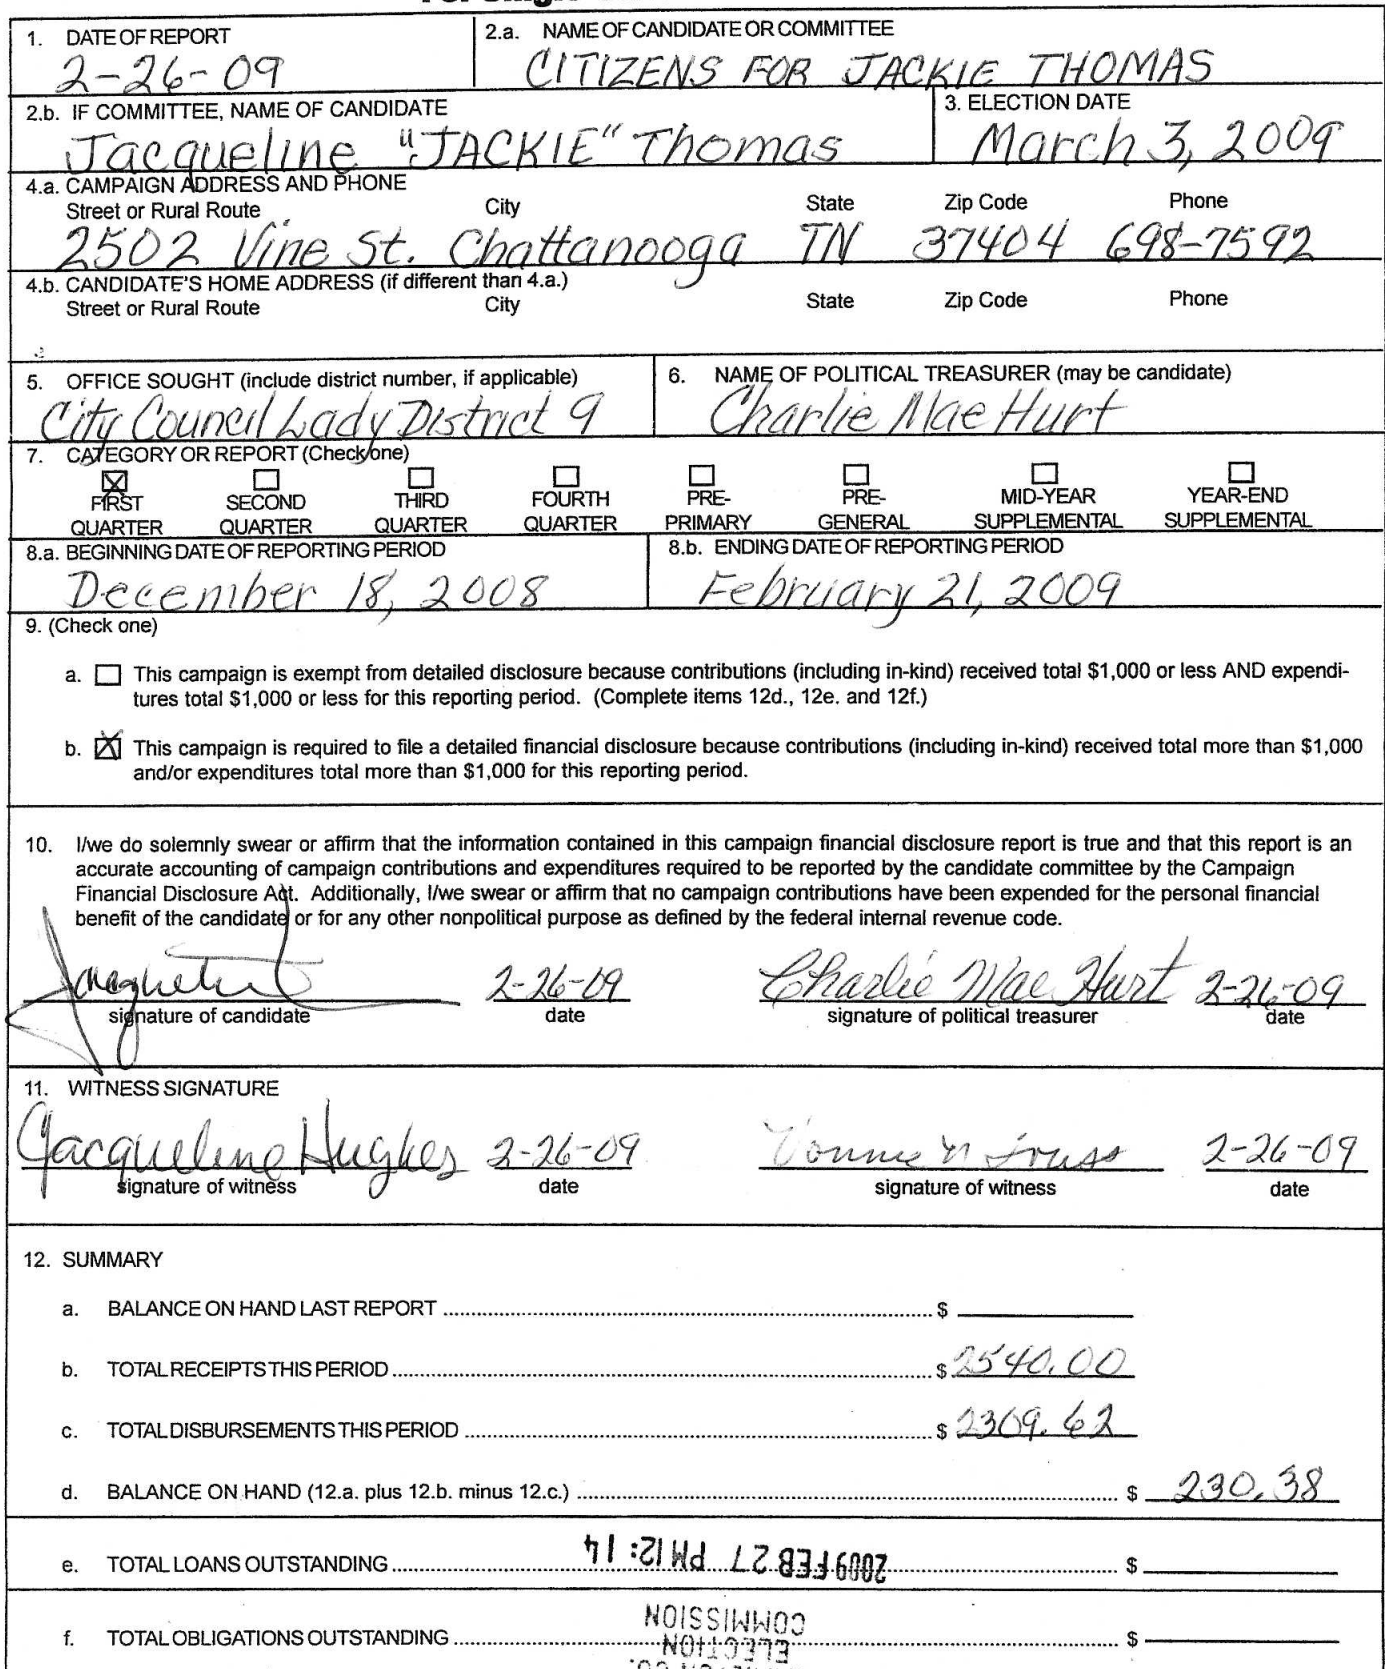 1. DATE OF REPORT
2-26-09
2.a. NAME OF CANDIDATE OR COMMITTEE
CITIZENS FOR JACKIE THOMAS
2.b. IF COMMITTEE, NAME OF CANDIDATE
Jacqueline "JACKIE" Thomas
3. ELECTION DATE
March 3, 2009
4.a. CAMPAIGN ADDRESS AND PHONE
Street or Rural Route City State Zip Code Phone
2502 Vine St. Chattanooga TN 37404 698-7592
4.b. CANDIDATE'S HOME ADDRESS (if different than 4.a.)
Street or Rural Route City State Zip Code Phone
5. OFFICE SOUGHT (include district number, if applicable)
City Council Lady District 9
6. NAME OF POLITICAL TREASURER (may be candidate)
Charlie Mae Hurt
7. CATEGORY OR REPORT (Check one)
FIRST QUARTER
SECOND QUARTER
THIRD QUARTER
FOURTH QUARTER
PRE-PRIMARY
PRE-GENERAL
MID-YEAR SUPPLEMENTAL
YEAR-END SUPPLEMENTAL
8.a. BEGINNING DATE OF REPORTING PERIOD
December 18, 2008
8.b. ENDING DATE OF REPORTING PERIOD
February 21, 2009
9. (Check one)
a. This campaign is exempt from detailed disclosure because contributions (including in-kind) received total $1,000 or less AND expendi-
tures total $1,000 or less for this reporting period. (Complete items 12d., 12e. and 12f.)
b. This campaign is required to file a detailed financial disclosure because contributions (including in-kind) received total more than $1,000
and/or expenditures total more than $1,000 for this reporting period.
10. I/we do solemnly swear or affirm that the information contained in this campaign financial disclosure report is true and that this report is an
accurate accounting of campaign contributions and expenditures required to be reported by the candidate committee by the Campaign
Financial Disclosure Act. Additionally, I/we swear or affirm that no campaign contributions have been expended for the personal financial
benefit of the candidate or for any other nonpolitical purpose as defined by the federal internal revenue code.
2-26-09 Charlie Mae Hurt 2-26-09
signature of candidate date signature of political treasurer date
11. WITNESS SIGNATURE
Jacqueline Hughes 2-26-09 2-26-09
signature of witness date signature of witness date
12. SUMMARY
a. BALANCE ON HAND LAST REPORT $
b. TOTAL RECEIPTS THIS PERIOD $ 2540.00
c. TOTAL DISBURSEMENTS THIS PERIOD $ 2309.62
d. BALANCE ON HAND (12.a. plus 12.b. minus 12.c.) $ 230.38
e. TOTAL LOANS OUTSTANDING $
2009 FEB 27 PM 12: 14
f. TOTAL OBLIGATIONS OUTSTANDING $
ELECTION
COMMISSION